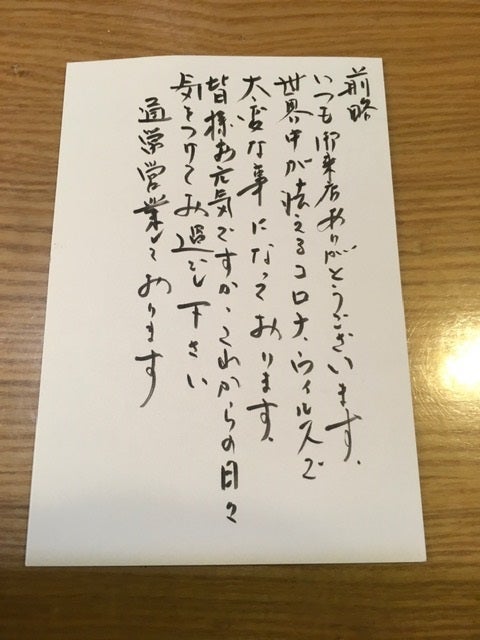 前略
いつも御来店ありがとうございます。
世界中が怯えるコロナウィルスで
大変な事になっております。
皆様お元気ですか、これからの日々
気をつけてお過ごし下さい
通常営業しております